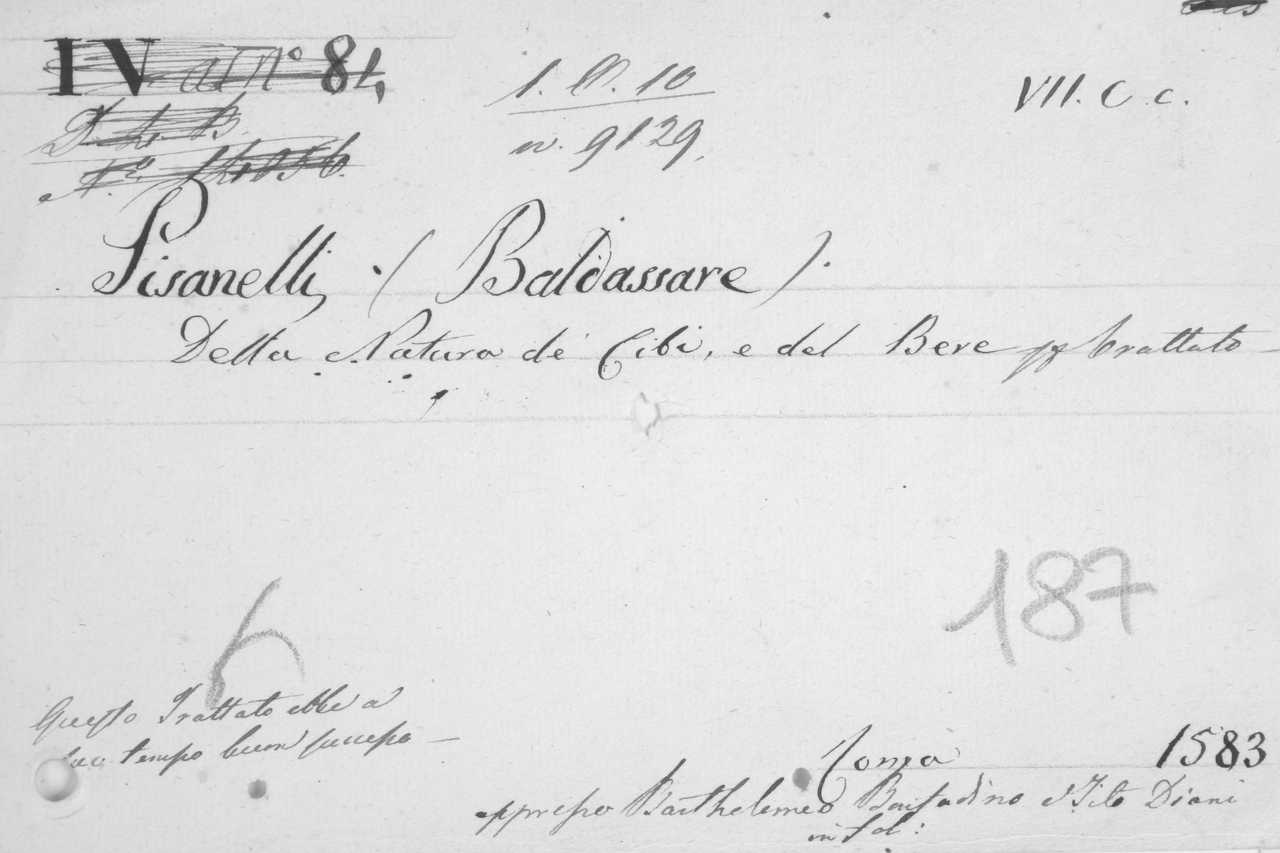 IV al N° 84
D. L. B.
1. O. 10
n. 9129.
VII. C c.
Pisanelli. (Baldassare).
Della Natura de Cibi, e del Bere trattato
187
Questo Trattato ebbe a
suo tempo buon successo —
Roma 1583
appresso Barthelemeo Bonfadino e Tito Diani
in fol: